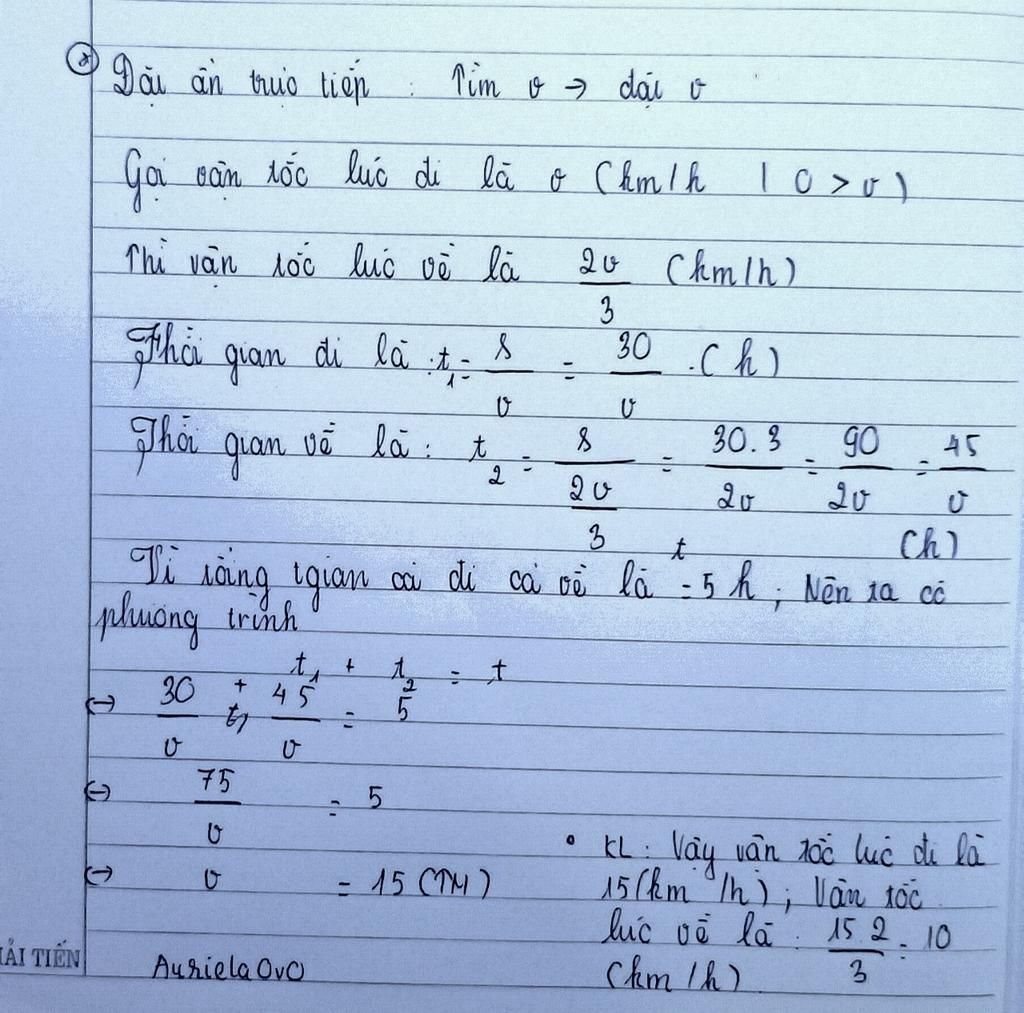 * Đặt ẩn trực tiếp : Tìm v → đặt v
Gọi vận tốc lúc đi là v (km/h | 0 > v)
Thì vận tốc lúc về là 2v/3 (km/h)
Thời gian đi là : t1 = s/v = 30/v . (h)
Thời gian về là : t2 = s/(2v/3) = 30.3/2v = 90/2v = 45/v (h)
Vì tổng tgian cả đi cả về là t = 5 h ; Nên ta có
phương trình
t1 + t2 = t
<=> 30/v + 45/v = 5
<=> 75/v = 5
<=> v = 15 (TM)
• KL : Vậy vận tốc lúc đi là
15 (km/h) ; Vận tốc
lúc về là : 15.2/3 = 10
(km/h)
ẢI TIẾN
AurielaOvO